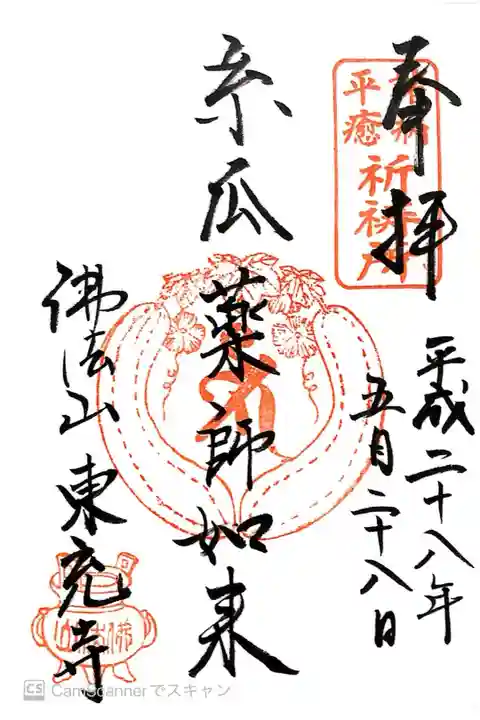 奉拝
平癒
祈祷所
平成二十八年
五月二十八日
糸瓜
薬師如来
佛法山東充寺
CS CamScannerでスキャン